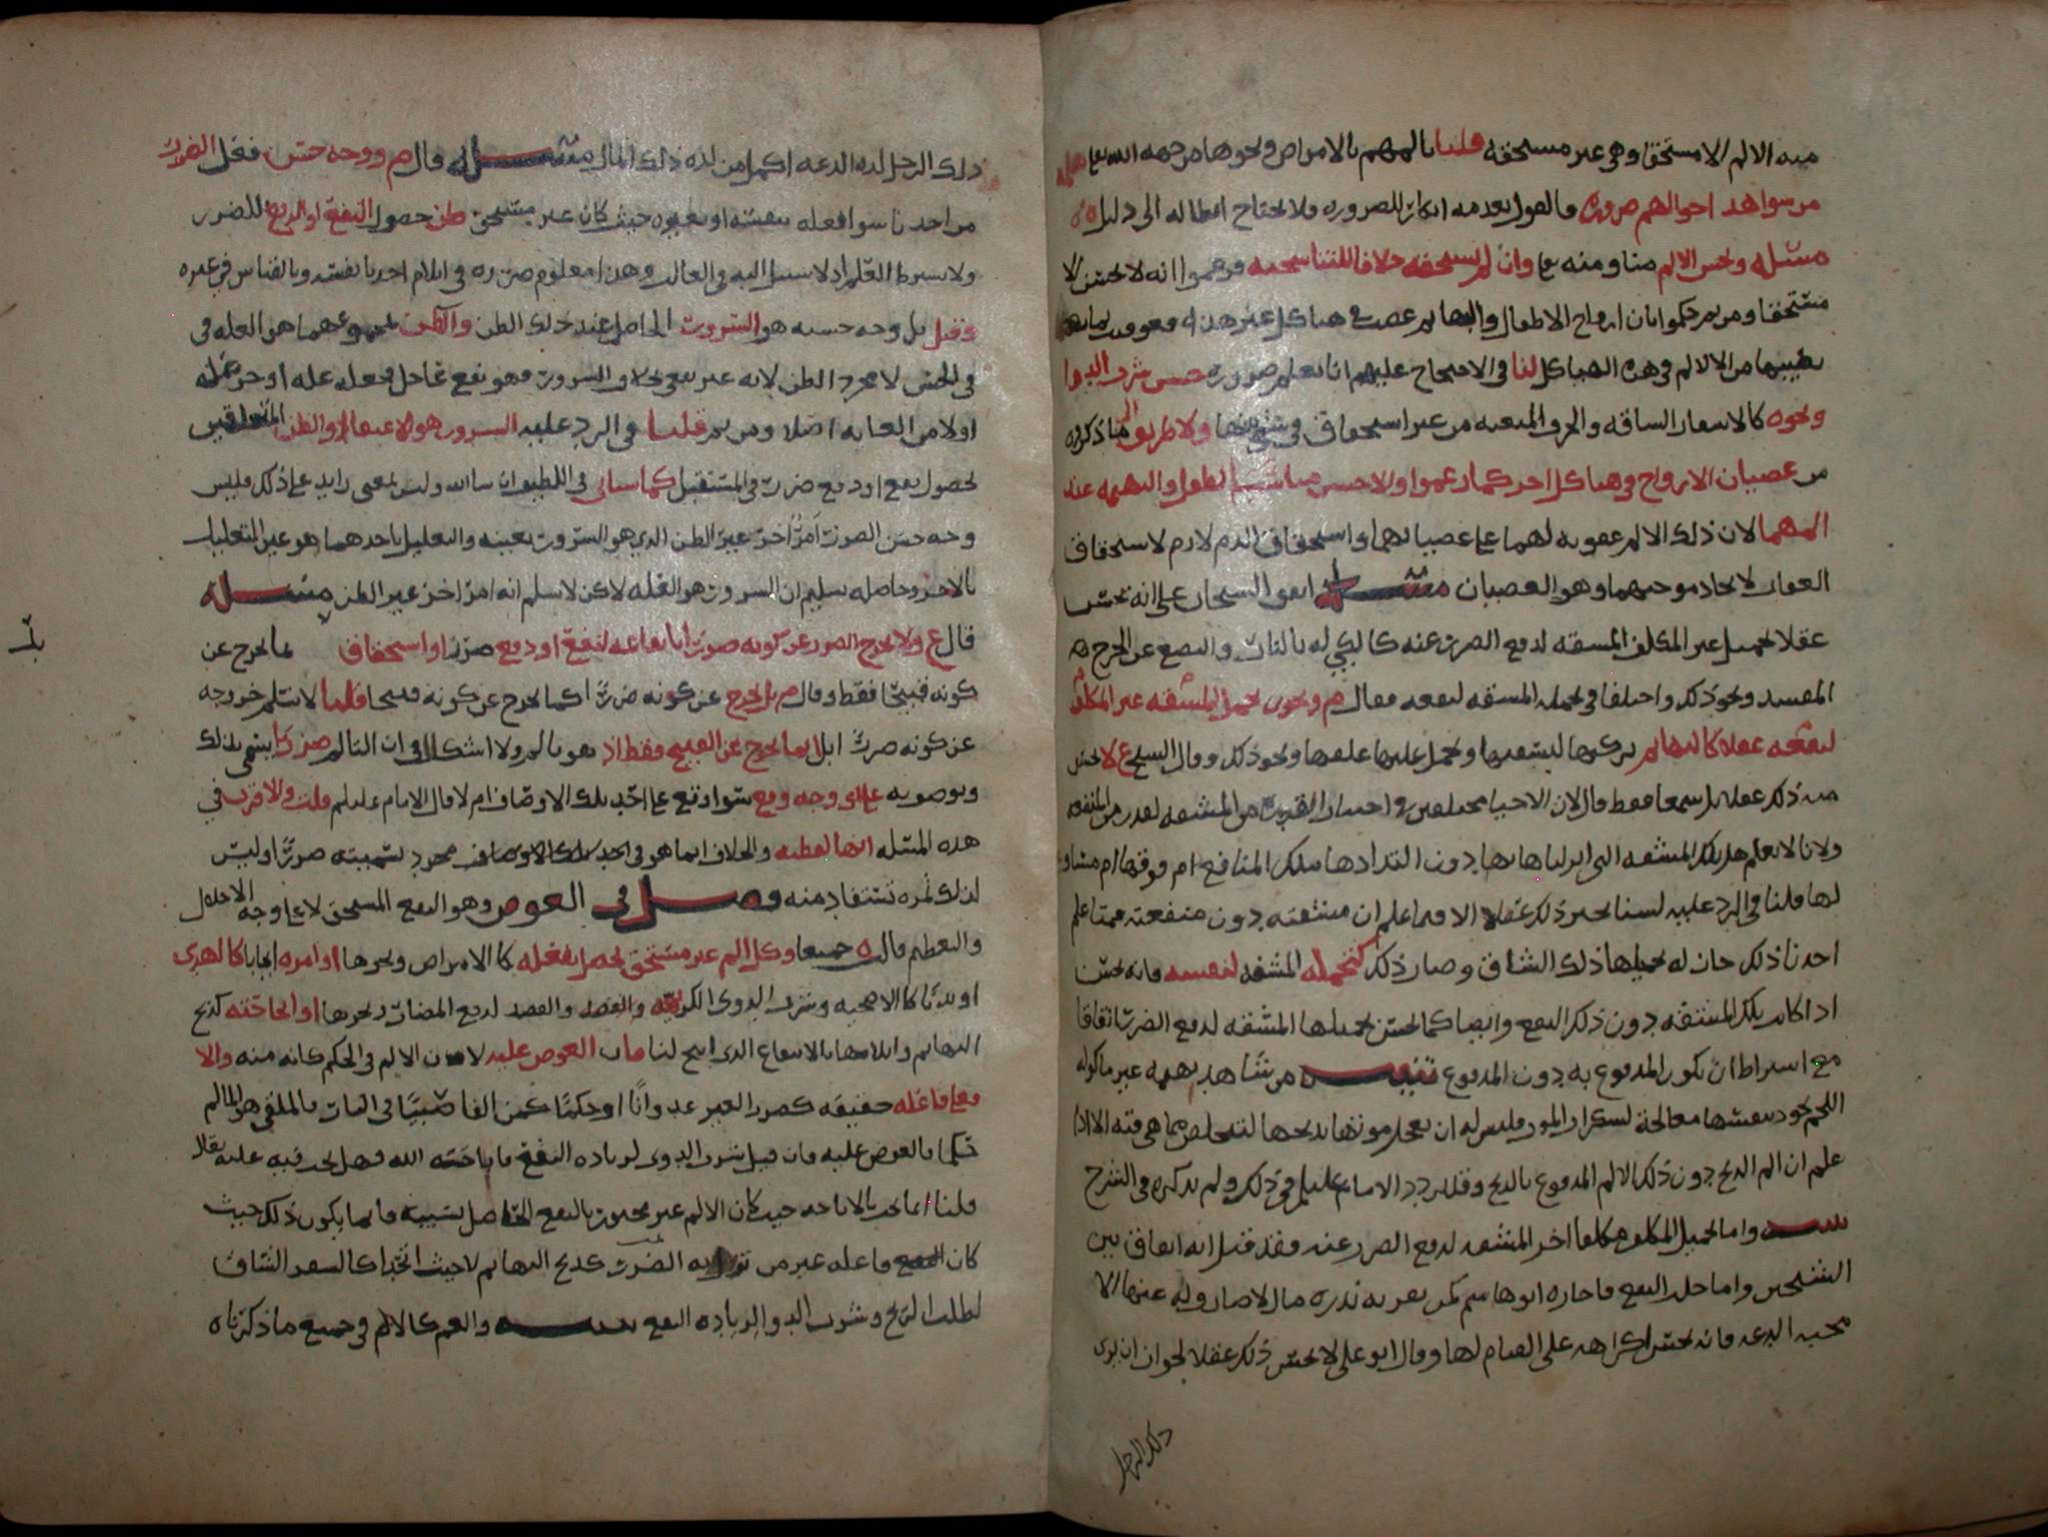 منه الالم الا مستحقا وهى غير مستحقه قلنا بالمهم بالامراض ونحوها من جهه الله تعالى
من سواهد احوالهم ضروره فالقول بعدمه انكار للضروره ولا يحتاج ابطاله الى دليل
مسله ويحسن الالم منا ومنه تعا وان لم نستحقه خلافا للتناسخيه فزعموا انه لا يحسن الا
مستحقا ومن ثم حكموا بان ارواح الاطفال والبهايم عصت فى هياكل غير هذه فعوقبت بما
يصيبها من الالالم فى هذه الهياكل لنا فى الاحتجاج عليهم انا نعلم ضروره حسن شرب الدوا
ونحوه كالاسفار الشاقه والحرف المتعبه من غير استحقاق ولا طريق الى ما ذكروه
من عصيان الارواح فى هياكل اخر كما زعموا ولا حسن منا الطفل والبهيمه عند
المهما لان ذلك الالم عقوبه لهما على عصيانهما واستحقاق الذم لازم لاستحقاق
العقاب لاتحاد موجبهما وهو العصيان مسله اتفق الشيخان على انه يحسن
عقلا تحميل غير المكلف المشقه لدفع الضرر عنه كالكي له بالنار والبضع عن الجرح
المفسد ونحو ذلك واختلفا فى تحمله المشقه لنفعه فقال م ويحسن تحميل المشقه غير المكلف
لنفعه عقلا كالبهايم نركبها لنسقيها ونحمل عليها علفها ونحو ذلك وقال الشيخ ع لا يحسن
منه ذلك عقلا بل سمعا فقط قال لان الاحيا مختلفين فى اختيار القدر من المشقه لقدر من المنفعه
ولانا لا نعلم هل تلك المشقه التى انزلناها بها دون التذاذها بتلك المنافع ام فوقها ام مساويه
لها قلنا فى الرد عليه لسنا نحيز ذلك عقلا الا فيما علم ان مشقته دون منفعته فمتا علم
احدنا ذلك جاز له تحميلها ذلك الشاق وصار ذلك كتحمله المشقه لنفسه فانه يحسن
اذا كانت تلك المشقه دون ذلك النفع وايضا كما يحسن تحميلها المشقه لدفع الضرر اتفاقا
مع اشتراط ان يكون المدفوع به دون المدفوع تنبيه من شاهد بهيمه غير ماكوله
اللحم تجود بنفسها معالجة لسكرات الموت فليس له ان يعجل موتها بذبحها لتتخلص مما هى فيه الا اذا
علم ان الم الذبح دون ذلك الالم المدفوع بالذبح وقد تردد الامام عليلم فى ذلك ولم يذكره فى الشرح
تنبيه واما تحميل المكلف مكلفا اخر المشقه لدفع الضرر عنه فقد قيل انه اتفاق بين
الشيخين واما جلب النفع فاجازه ابو هاشم كمن يعرف بدره مال لا صارف له عنها الا
محبه الدعه فانه يحسن اكراهه على القيام لها وقال ابو على لا يحسن ذلك عقلا لجواز ان يرى
ذلك الرجل
ذلك الرجل لذه الدعه اكمل من لذه ذلك المال مسله قال م ووجه حسن فعل الضرر
من احدنا سوا فعله بنفسه او بغيره حيث كان غير مستحق ظن حصول النفع او الدفع للضرر
ولا يشترط العلم اذ لا سبيل اليه فى الغالب وهذا معلوم ضروره فى ايلام احدنا نفسه وبالقياس فى غيره
وقيل بل وجه حسنه هو السرور الحاصل عند ذلك الظن والظن مجموعهما هو العله فى
فى الحسن لا مجرد الظن لانه غير نفع بخلاف السرور فهو نفع عاجل فجعله عله او جزء عله
اولا من الغايه اصلا ومن ثم قلنا فى الرد عليه السرور هو الاعتقاد والظن المتعلقين
بحصول نفع او دفع ضرر فى المستقبل كما سياتى فى اللطيف ان شا الله وليس لمعنى زايد على ذلك فليس
وجه حسن الضرر امرًا اخرَ غيرَ الظن الذى هو السرور بعينه والتعليل باحدهما هو عين التعليل
بالاخر وحاصله تسليم ان السرور هو العله لاكن لا نسلم انه امرٌ اخر غير الظن مسله
قال ع ولا يخرج الضرر عن كونه ضررا بايقاعه لنفع او دفع ضرر او استحقاق انما يخرج عن
كونه قبيحًا فقط وقال م بل يخرج عن كونه ضررًا كما يخرج عن كونه قبيحا قلنا لا نسلم خروجه
عن كونه ضررًا بل انما يخرج عن القبيح فقط اذ هو تالم ولا اشكال فى ان التالم ضرر كما يسمى بذلك
ويوصف به على اى وجه وقع سوا وقع على احد تلك الاوصاف ام لا قال الامام عليلم قلت والاقرب فى
هذه المسله انها لفظيه والخلاف انما هو فى احد تلك الاوصاف مجرد تسميته ضررًا وليس
لذلك ثمره تستفاد منه فصل فى العوض وهو النفع المستحق لا على وجه الاجلال
والتعظيم قال ه جميعا وكل الم غير مستحق يحصل بفعله كالامراض ونحوها او امره ايجابا كالهدى
او ندبًا كالاضحيه وشرب الدوى الكريه والفصد والفصد لدفع المضار ونحوها او اباحته كذبح
البهايم وايلامها بالانتفاع الذى ابيح لنا فان العوض عليه لان الالم فى الحكم كانه منه والا
فعلى فاعله حقيقه كضرر الغير عدوانًا او حكمًا كمن القا صبيًا فى النار فالملقى هو المالم
حكما فالعوض عليه فان قيل شرب الدوى لزياده النفع باباحته الله فهل يجب فيه عليه تعالى
قلنا انما يجب بالاباحه حيث كان الالم غير مجبور بالنفع الحاصل بسببه وانما يكون ذلك حيث
كان النفع فاعله غير من نزل به الضرر كذبح البهايم لا حيث اتحدا كالسفر الشاق
لطلب الربح وشرب الدوا لزياده النفع تنبيه والغم كالالم فى جميع ما ذكرناه